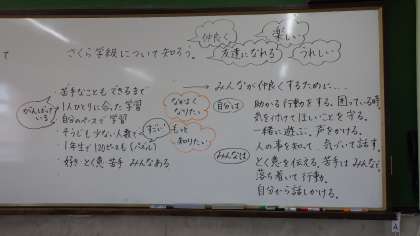 て
さくら学級について知ろう。
仲良く
楽しい
友達になれる
うれしい
がんばっている
・苦手なこともできるまで
・1人ひとりに合った学習
・自分のペースで学習
・そうじも少ない人数で
・1年生で120ピースも(パズル)
・好き・とく意 苦手 みんなある
すごい
なかよくなりたい
もっと知りたい
→みんなが仲良くするために…
自分は
助かる行動をする。困っている時。
気を付けてほしいことを守る。
一緒に遊ぶ。声をかける。
人の事を知って、気づいて話す。
みんなは
とく意を伝える。苦手はみんなで
落ち着いて行動。
自分から話しかける。
A